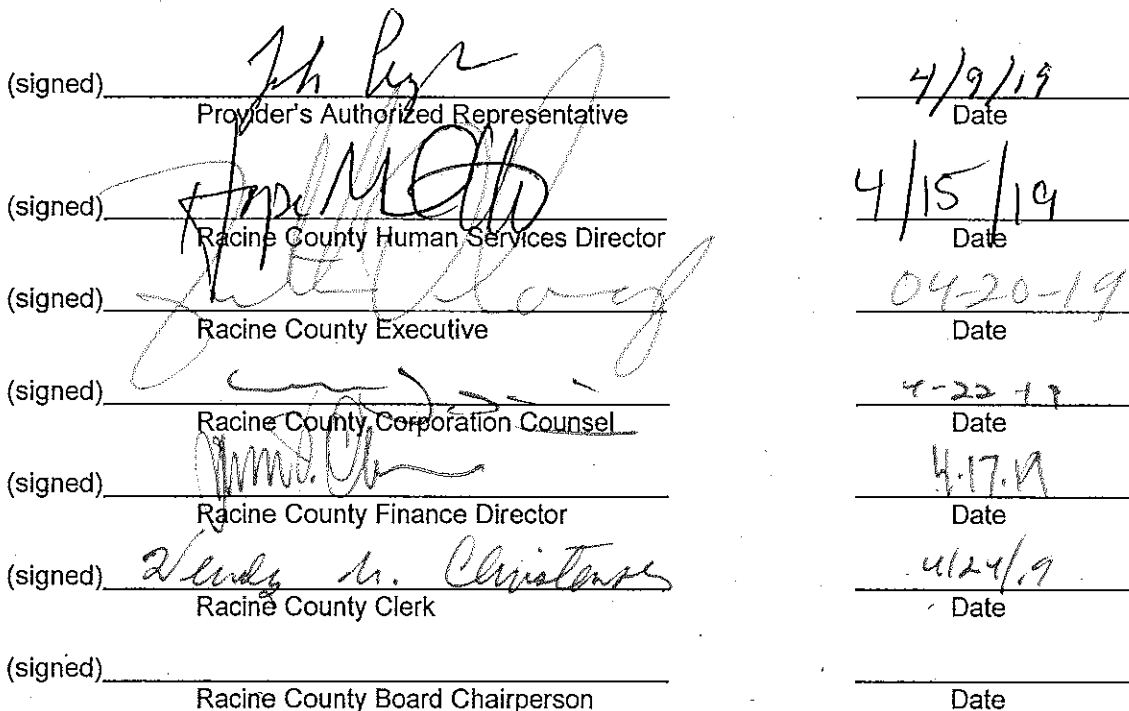 (signed) 4/9/19
Provider's Authorized Representative Date
(signed) 4/15/19
Racine County Human Services Director Date
(signed) 04-20-19
Racine County Executive Date
(signed) 4-22-19
Racine County Corporation Counsel Date
(signed) 4.17.19
Racine County Finance Director Date
(signed) Wendy M. Christensen 4/24/19
Racine County Clerk Date
(signed)
Racine County Board Chairperson Date